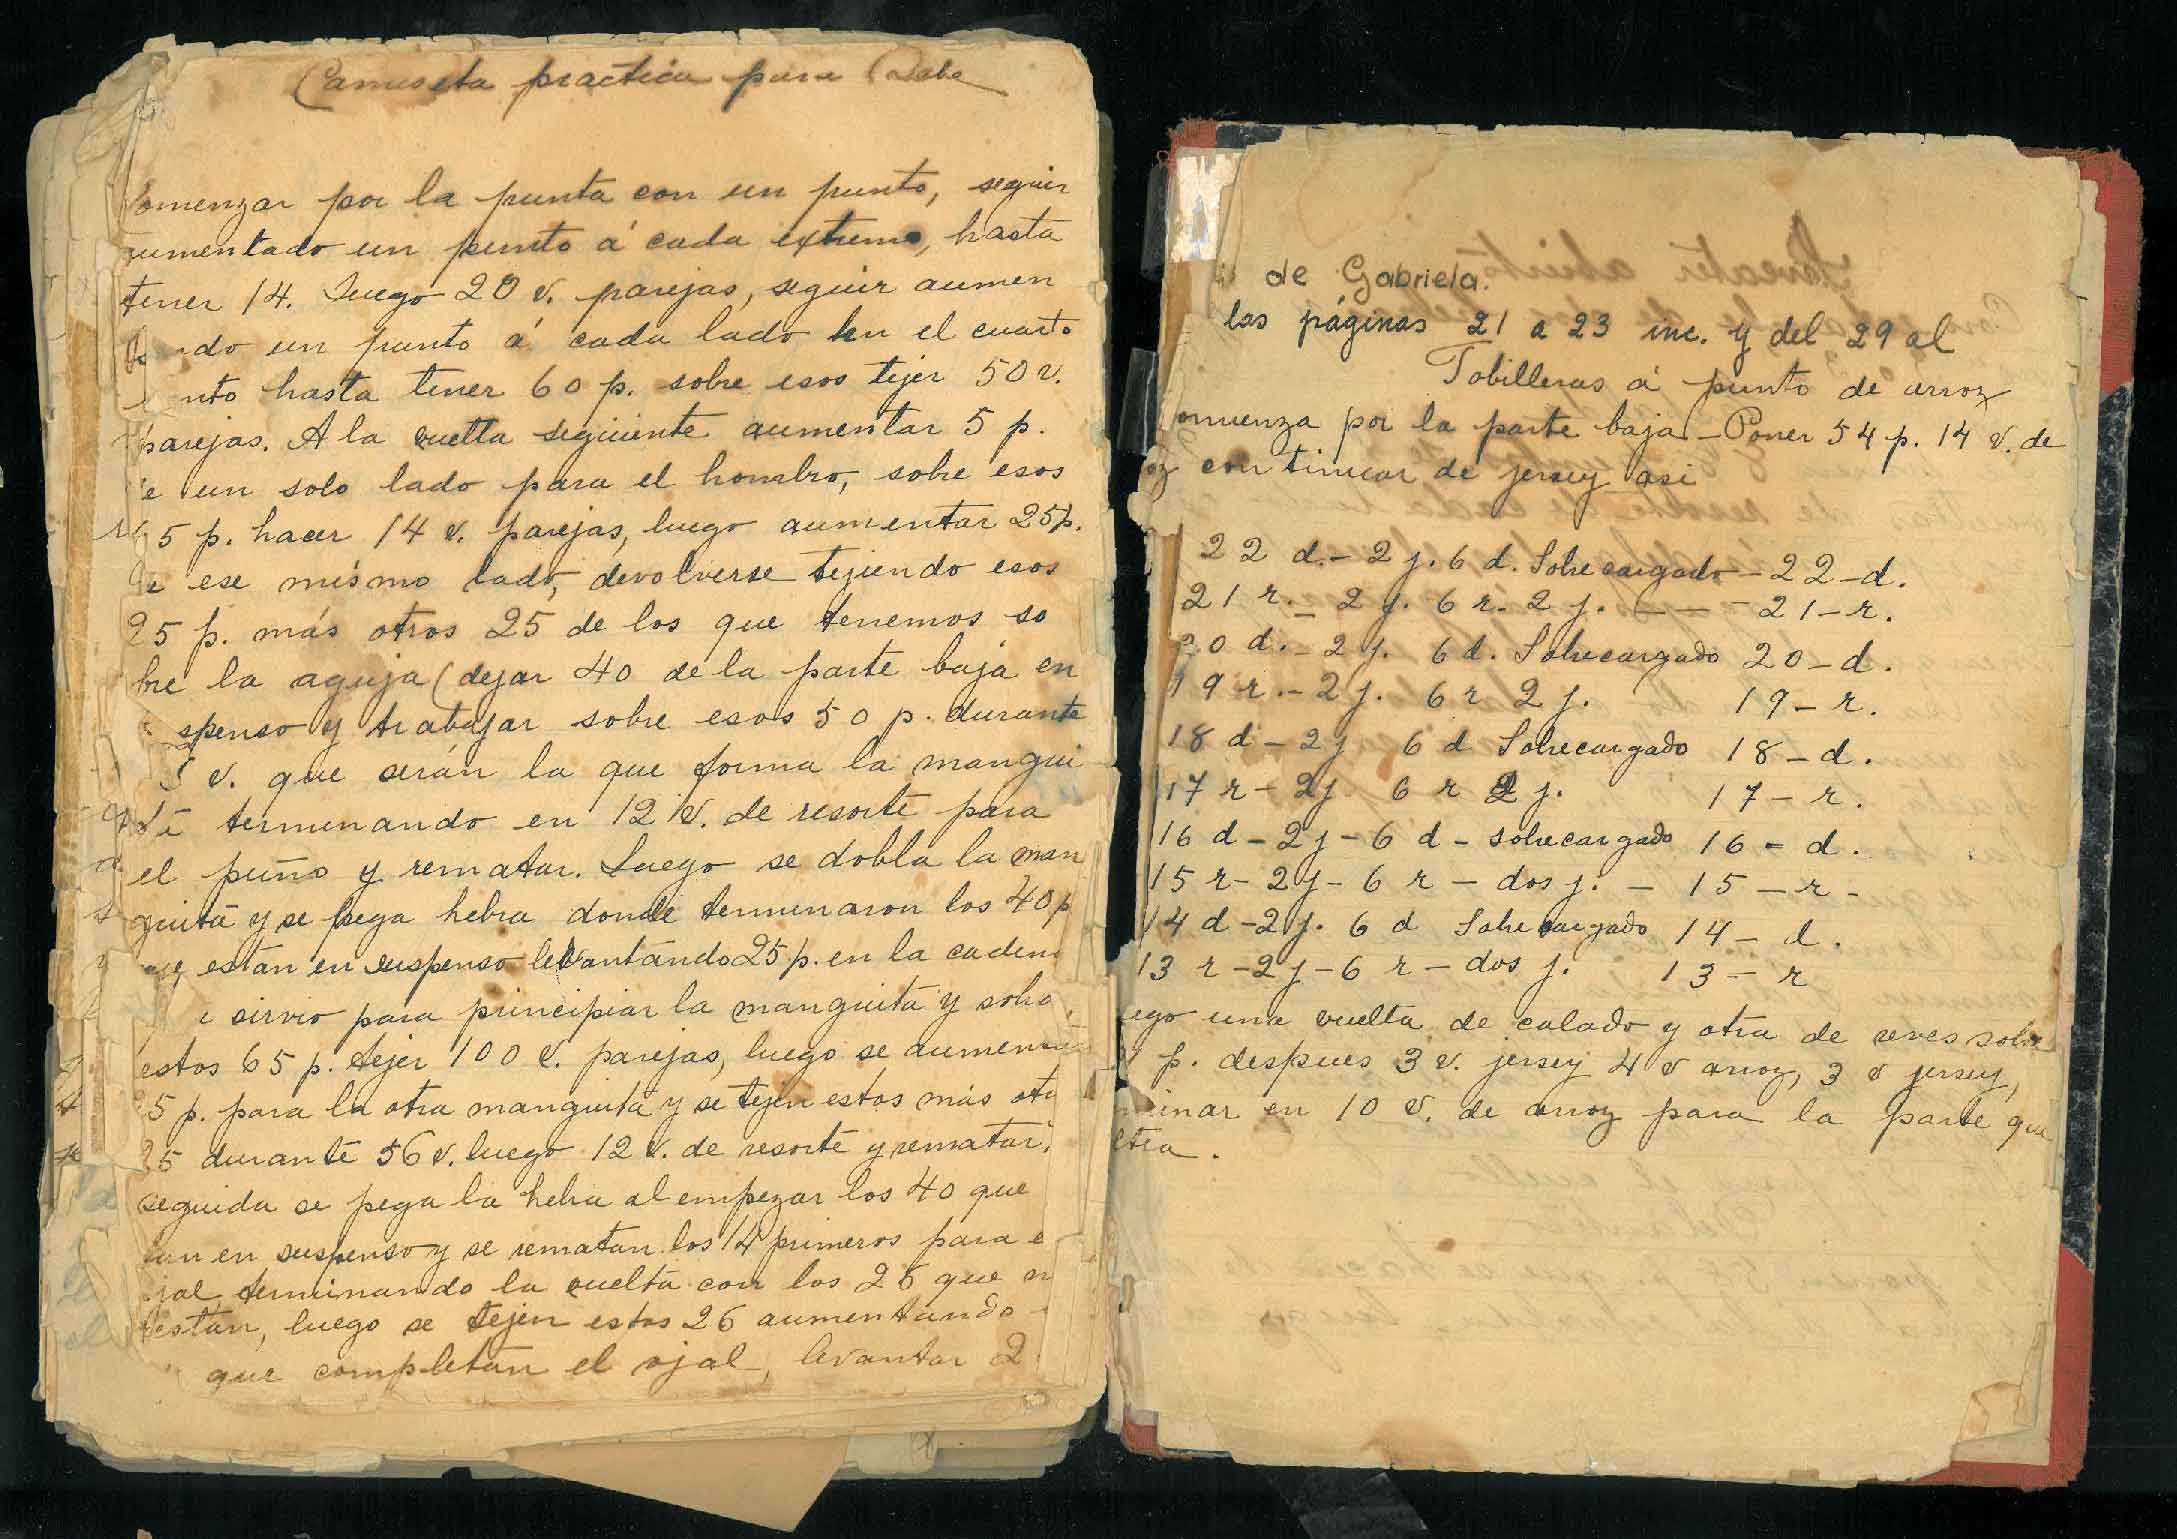 Camiseta practica para Bebe
omenzar por la punta con un punto, seguir
umentado un punto á cada extremo, hasta
tener 14. Luego 20 v. parejas, seguir aumen
do un punto á cada lado en el cuarto
nto hasta tener 60 p. sobre esos tejer 50 v.
parejas. A la vuelta seguiente aumentar 5 p.
e un solo lado para el hombro, sobre esos
5 p. hacer 14 v. parejas, luego aumentar 25 p.
e ese mismo lado, devolverse tejiendo esos
25 p. más otros 25 de los que tenemos so
bre la aguja (dejar 40 de la parte baja en
spenso y trabajar sobre esos 50 p. durante
v. que serán la que forma la mangui
terminando en 12 v. de resorte para
el puño y rematar. Luego se dobla la man
guita y se pega hebra donde terminaron los 40 p
están en suspenso levantando 25 p. en la caden
sirvio para principiar la manguita y sobre
estos 65 p. tejer 100 v. parejas, luego se aumen
5 p. para la otra manguita y se tejen estos más otr
25 durante 56 v. luego 12 v. de resorte y rematar.
seguida se pega la hebra al empezar los 40 que
an en suspenso y se rematan los 14 primeros para e
jal, terminando la vuelta con los 26 que
estan, luego se tejen estos 26 aumentando
que completan el ojal, levantar 2
de Gabriela.
las páginas 21 a 23 inc. y del 29 al
Tobilleras á punto de arroz
omienza por la parte baja - Poner 54 p. 14 v. de
oz continuar de jersey asi
22 d. - 2 j. 6 d. Sobrecargado - 22 - d.
21 r. - 2 j. 6 r. 2 j. - - - 21 - r.
20 d. - 2 j. 6 d. Sobrecargado 20 - d.
19 r. - 2 j. 6 r 2 j. 19 - r.
18 d - 2 j 6 d Sobrecargado 18 - d.
17 r - 2 j 6 r 2 j. 17 - r.
16 d - 2 j - 6 d - sobrecargado 16 - d.
15 r - 2 j - 6 r - dos j. - 15 - r -
14 d - 2 j. 6 d Sobrecargado 14 - d.
13 r - 2 j - 6 r - dos j. 13 - r
ego una vuelta de calado y otra de reves sobre
p. despues 3 v. jersey 4 v arroz, 3 v jersey,
minar en 10 v. de arroz para la parte que